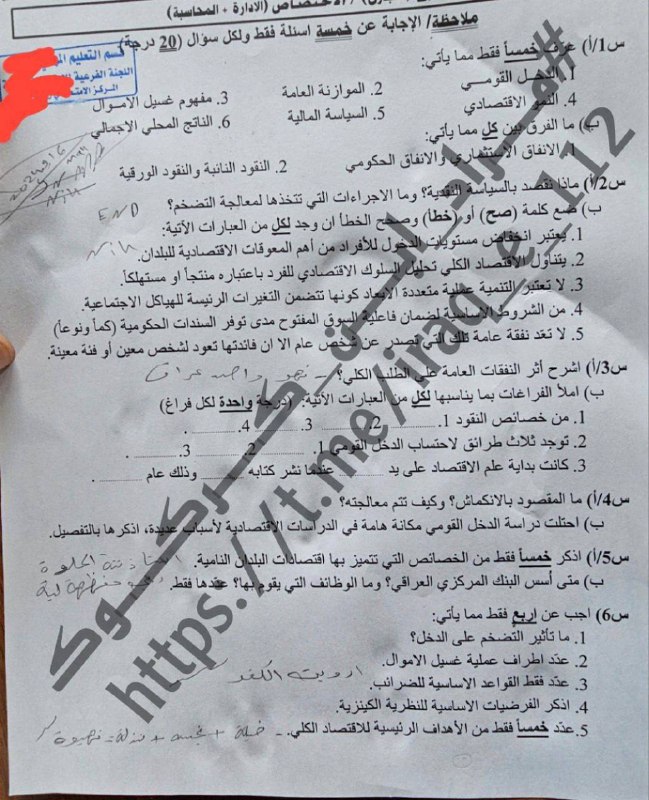 الاختصاص (الادارة + المحاسبة)
ملاحظة/ الإجابة عن خمسة اسئلة فقط ولكل سؤال (20 درجة)
قسم التعليم
اللجنة الفرعية
س1/أ) عرّف خمساً فقط مما يأتي:
1. الدخل القومي 2. الموازنة العامة 3. مفهوم غسيل الاموال
4. النمو الاقتصادي 5. السياسة المالية 6. الناتج المحلي الإجمالي
ب) ما الفرق بين كل مما يأتي:
1. الانفاق الاستثماري والانفاق الحكومي 2. النقود النائبة والنقود الورقية
س2/أ) ماذا نقصد بالسياسة النقدية؟ وما الاجراءات التي تتخذها لمعالجة التضخم؟
END
ب) ضع كلمة (صح) أو (خطأ) وصحح الخطأ ان وجد لكل من العبارات الآتية:
1. يعتبر انخفاض مستويات الدخول للأفراد من أهم المعوقات الاقتصادية للبلدان.
2. يتناول الاقتصاد الكلي تحليل السلوك الاقتصادي للفرد باعتباره منتجاً او مستهلكاً.
3. لا تعتبر التنمية عملية متعددة الابعاد كونها تتضمن التغيرات الرئيسة للهياكل الاجتماعية.
4. من الشروط الاساسية لضمان فاعلية السوق المفتوح مدى توفر السندات الحكومية (كماً ونوعاً)
5. لا تعد نفقة عامة تلك التي تصدر عن شخص عام الا ان فائدتها تعود لشخص معين أو فئة معينة.
س3/أ) اشرح أثر النفقات العامة على الطلب الكلي؟
ب) املأ الفراغات بما يناسبها لكل من العبارات الآتية: (درجة واحدة لكل فراغ)
1. من خصائص النقود 1. ........ 2. ........ 3. ........ 4. ........
2. توجد ثلاث طرائق لاحتساب الدخل القومي 1. ........ 2. ........ 3. ........ .
3. كانت بداية علم الاقتصاد على يد ........ عندما نشر كتابه ........ وذلك عام ........ .
س4/أ) ما المقصود بالانكماش؟ وكيف تتم معالجته؟
ب) احتلت دراسة الدخل القومي مكانة هامة في الدراسات الاقتصادية لأسباب عديدة، اذكرها بالتفصيل.
س5/أ) اذكر خمساً فقط من الخصائص التي تتميز بها اقتصادات البلدان النامية.
ب) متى أسس البنك المركزي العراقي؟ وما الوظائف التي يقوم بها؟ عددها فقط.
س6) اجب عن اربع فقط مما يأتي:
1. ما تأثير التضخم على الدخل؟
2. عدّد اطراف عملية غسيل الاموال.
3. عدّد فقط القواعد الاساسية للضرائب.
4. اذكر الفرضيات الاساسية للنظرية الكينزية.
5. عدّد خمساً فقط من الأهداف الرئيسية للاقتصاد الكلي.
https://t.me/iraq_e_112